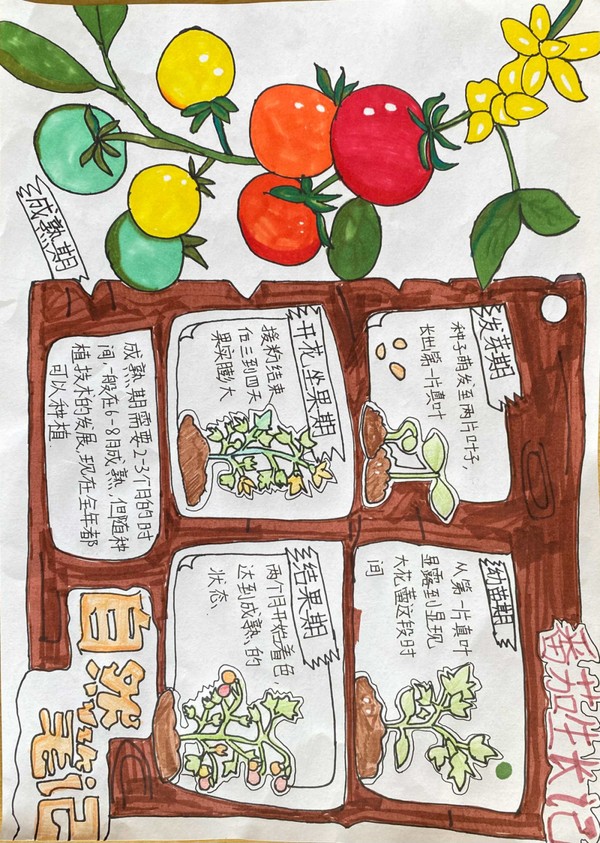 番茄生长记
发芽期
种子萌发至两片叶子,
长出第一片真叶
幼苗期
从第一片真叶
显露到显现
大花蕾这段时
间
开花坐果期
接粉结束
三到四天
果实膨大
结果期
两个月开始着色
达到成熟的
状态.
成熟期
成熟期需要2-3个月的时
间,一般在6-8月成熟,但随种
植技术的发展,现在全年都
可以种植.
自然
笔记